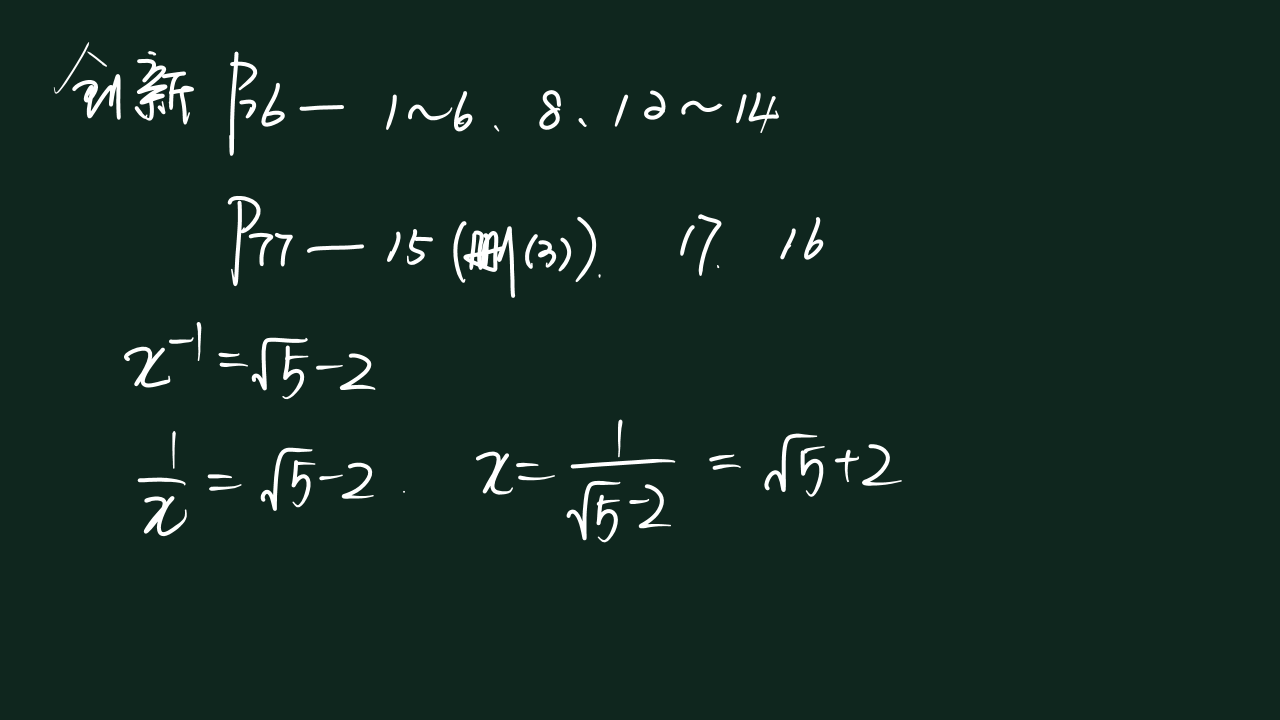 创新 P76— 1~6、8、12~14
P77— 15(删(3)). 17. 16
x⁻¹=√5-2
1/x = √5-2. x= 1/(√5-2) = √5+2